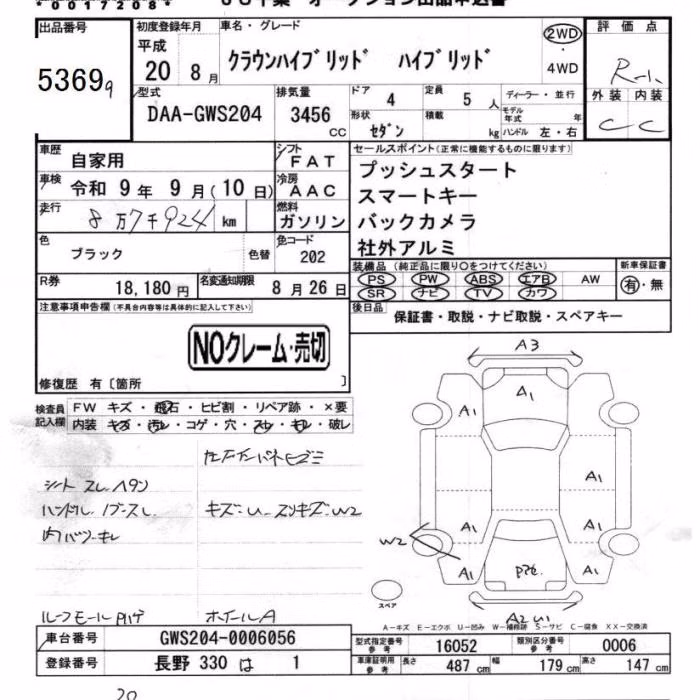 *0017208*
出品番号
5369
初度登録年月 車名・グレード
平成 20 8月
クラウンハイブリッド ハイブリッド
2WD
4WD
評価点
外装 内装
C C
型式
DAA-GWS204
排気量
3456 CC
ドア 4
定員 5 人
ディーラー・並行
形状 セダン
積載 kg
モデル年式 年
ハンドル 左・右
車歴 自家用
シフト FAT
車検 令和 9年 9月(10日)
冷房 AAC
走行 8万7千924 km
燃料 ガソリン
色 ブラック 色替
色コード 202
R券 18,180円
名変通知期限 8月26日
セールスポイント(正常に機能するものに限ります)
プッシュスタート
スマートキー
バックカメラ
社外アルミ
装備品(純正品に限り○をつけてください)
PS PW ABS エアB AW
SR ナビ TV カワ
新車保証書
有・無
後日品
保証書・取説・ナビ取説・スペアキー
注意事項申告欄(不具合内容等は具体的に記入して下さい)
NOクレーム・売切
修復歴 有〔箇所 〕
検査員記入欄
FW キズ・飛石・ヒビ割・リペア跡・×要
内装 キズ・汚レ・コゲ・穴・スレ・キレ・破レ
シート スレ ヘタン
ハンドル
キズ=U
W2
ルーフモール
ホイールA
A3
A1
A1
A1
A1
A1
A1
A1
W2
A2 U1
スペア
A-キズ E-エクボ U-凹み W-補修跡 S-サビ C-腐食 XX-交換済
車台番号 GWS204-0006056
登録番号 長野 330 は 1
型式指定番号 参考 16052
類別区分番号 参考 0006
車庫証明用 参考 長さ 487 cm 幅 179 cm 高さ 147 cm
20